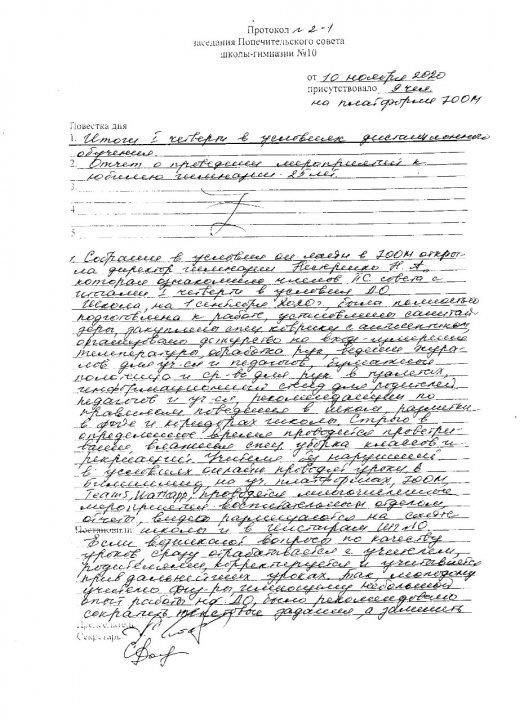 Протокол № 2-1
заседания Попечительского совета
школы-гимназии №10
от 10 ноября 2020
присутствовало 9 чел
на платформе ZOOM
Повестка дня
1. Итоги I четверти в условиях дистанционного
обучения.
2. Отчет о проведении мероприятий к
юбилею гимназии - 25 лет.
3.
4.
5.
1. Собрание в условиях он-лайн в ZOOM откры-
ла директор гимназии Н. А.,
которая ознакомила членов ПС совета с
итогами I четверти в условиях ДО
Школа на 1 сентября 2020г. была полностью
подготовлена к работе, установлены санитай-
зеры, закуплены спец коврики с антисептиком,
организовано дежурство на входе - измерение
температуры, обработка рук, ведение журна-
лов для уч-ся и педагогов, бумажные
полотенца и ср-ва для рук в туалетах,
информационный стенд для родителей,
педагогов и уч-ся, рекомендациями по
правилам поведения в школе, разметки
в фойе и коридорах школы. Строго в
определенное время проводится проветри-
вание, влажная спец уборка классов и
рекреаций. Учителя без нарушений
в условиях онлайн проводят уроки в
на уч. платформах, ZOOM,
Teams, Watsapp. Проводятся многочисленные
мероприятия воспитательным отделом,
отчеты, видео размещаются на сайте
Постановили: школы и в Инстаграм ШГ №10.
Если возникают вопросы по качеству
уроков сразу отрабатывается с учителем,
родителями, корректируется и учитывается
при дальнейших уроках. Так молодому
учителю физ-ры имеющему небольшой
опыт работы на ДО, было рекомендовано
сократить текстовые задания, а заменить
Председатель
Секретарь